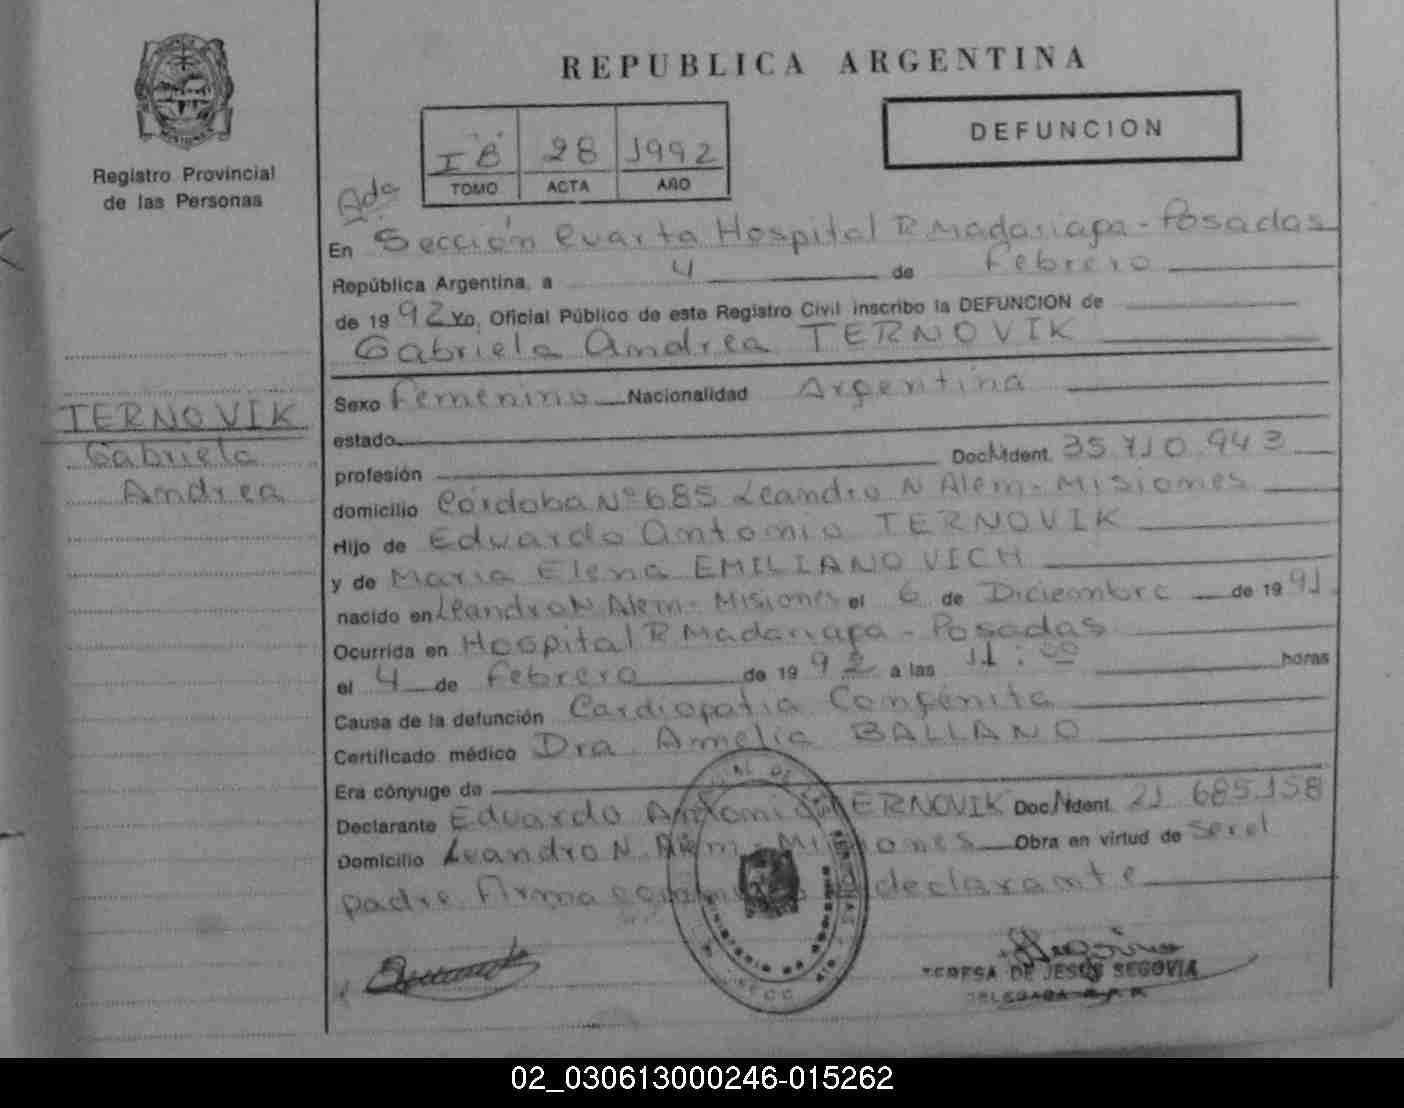 REPUBLICA ARGENTINA
Registro Provincial
de las Personas
I B 28 1992
TOMO ACTA AÑO
DEFUNCION
Ada
En Sección Cuarta Hospital R. Madariaga - Posadas
República Argentina, a 4 de Febrero
de 1992 Yo, Oficial Público de este Registro Civil inscribo la DEFUNCION de
Gabriela Andrea TERNOVIK
TERNOVIK
Gabriela
Andrea
Sexo Femenino Nacionalidad Argentina
estado
profesión Doc. Ident. 35.710.943
domicilio Córdoba Nº 685 Leandro N Alem - Misiones
Hijo de Eduardo Antonio TERNOVIK
y de Maria Elena EMILIANOVICH
nacido en Leandro N Alem - Misiones el 6 de Diciembre de 1991.
Ocurrida en Hospital R Madariaga - Posadas
el 4 de Febrero de 1992 a las 11:00 horas
Causa de la defunción Cardiopatia Congénita
Certificado médico Dra. Amelia BALLANO
Era cónyuge de
Declarante Eduardo Antonio TERNOVIK Doc. Ident. 21.685.158
Domicilio Leandro N. Alem - Misiones Obra en virtud de ser el
padre. Firma declarante
TERESA DE JESUS SEGOVIA
DELEGADA R.P.P.
02_030613000246-015262